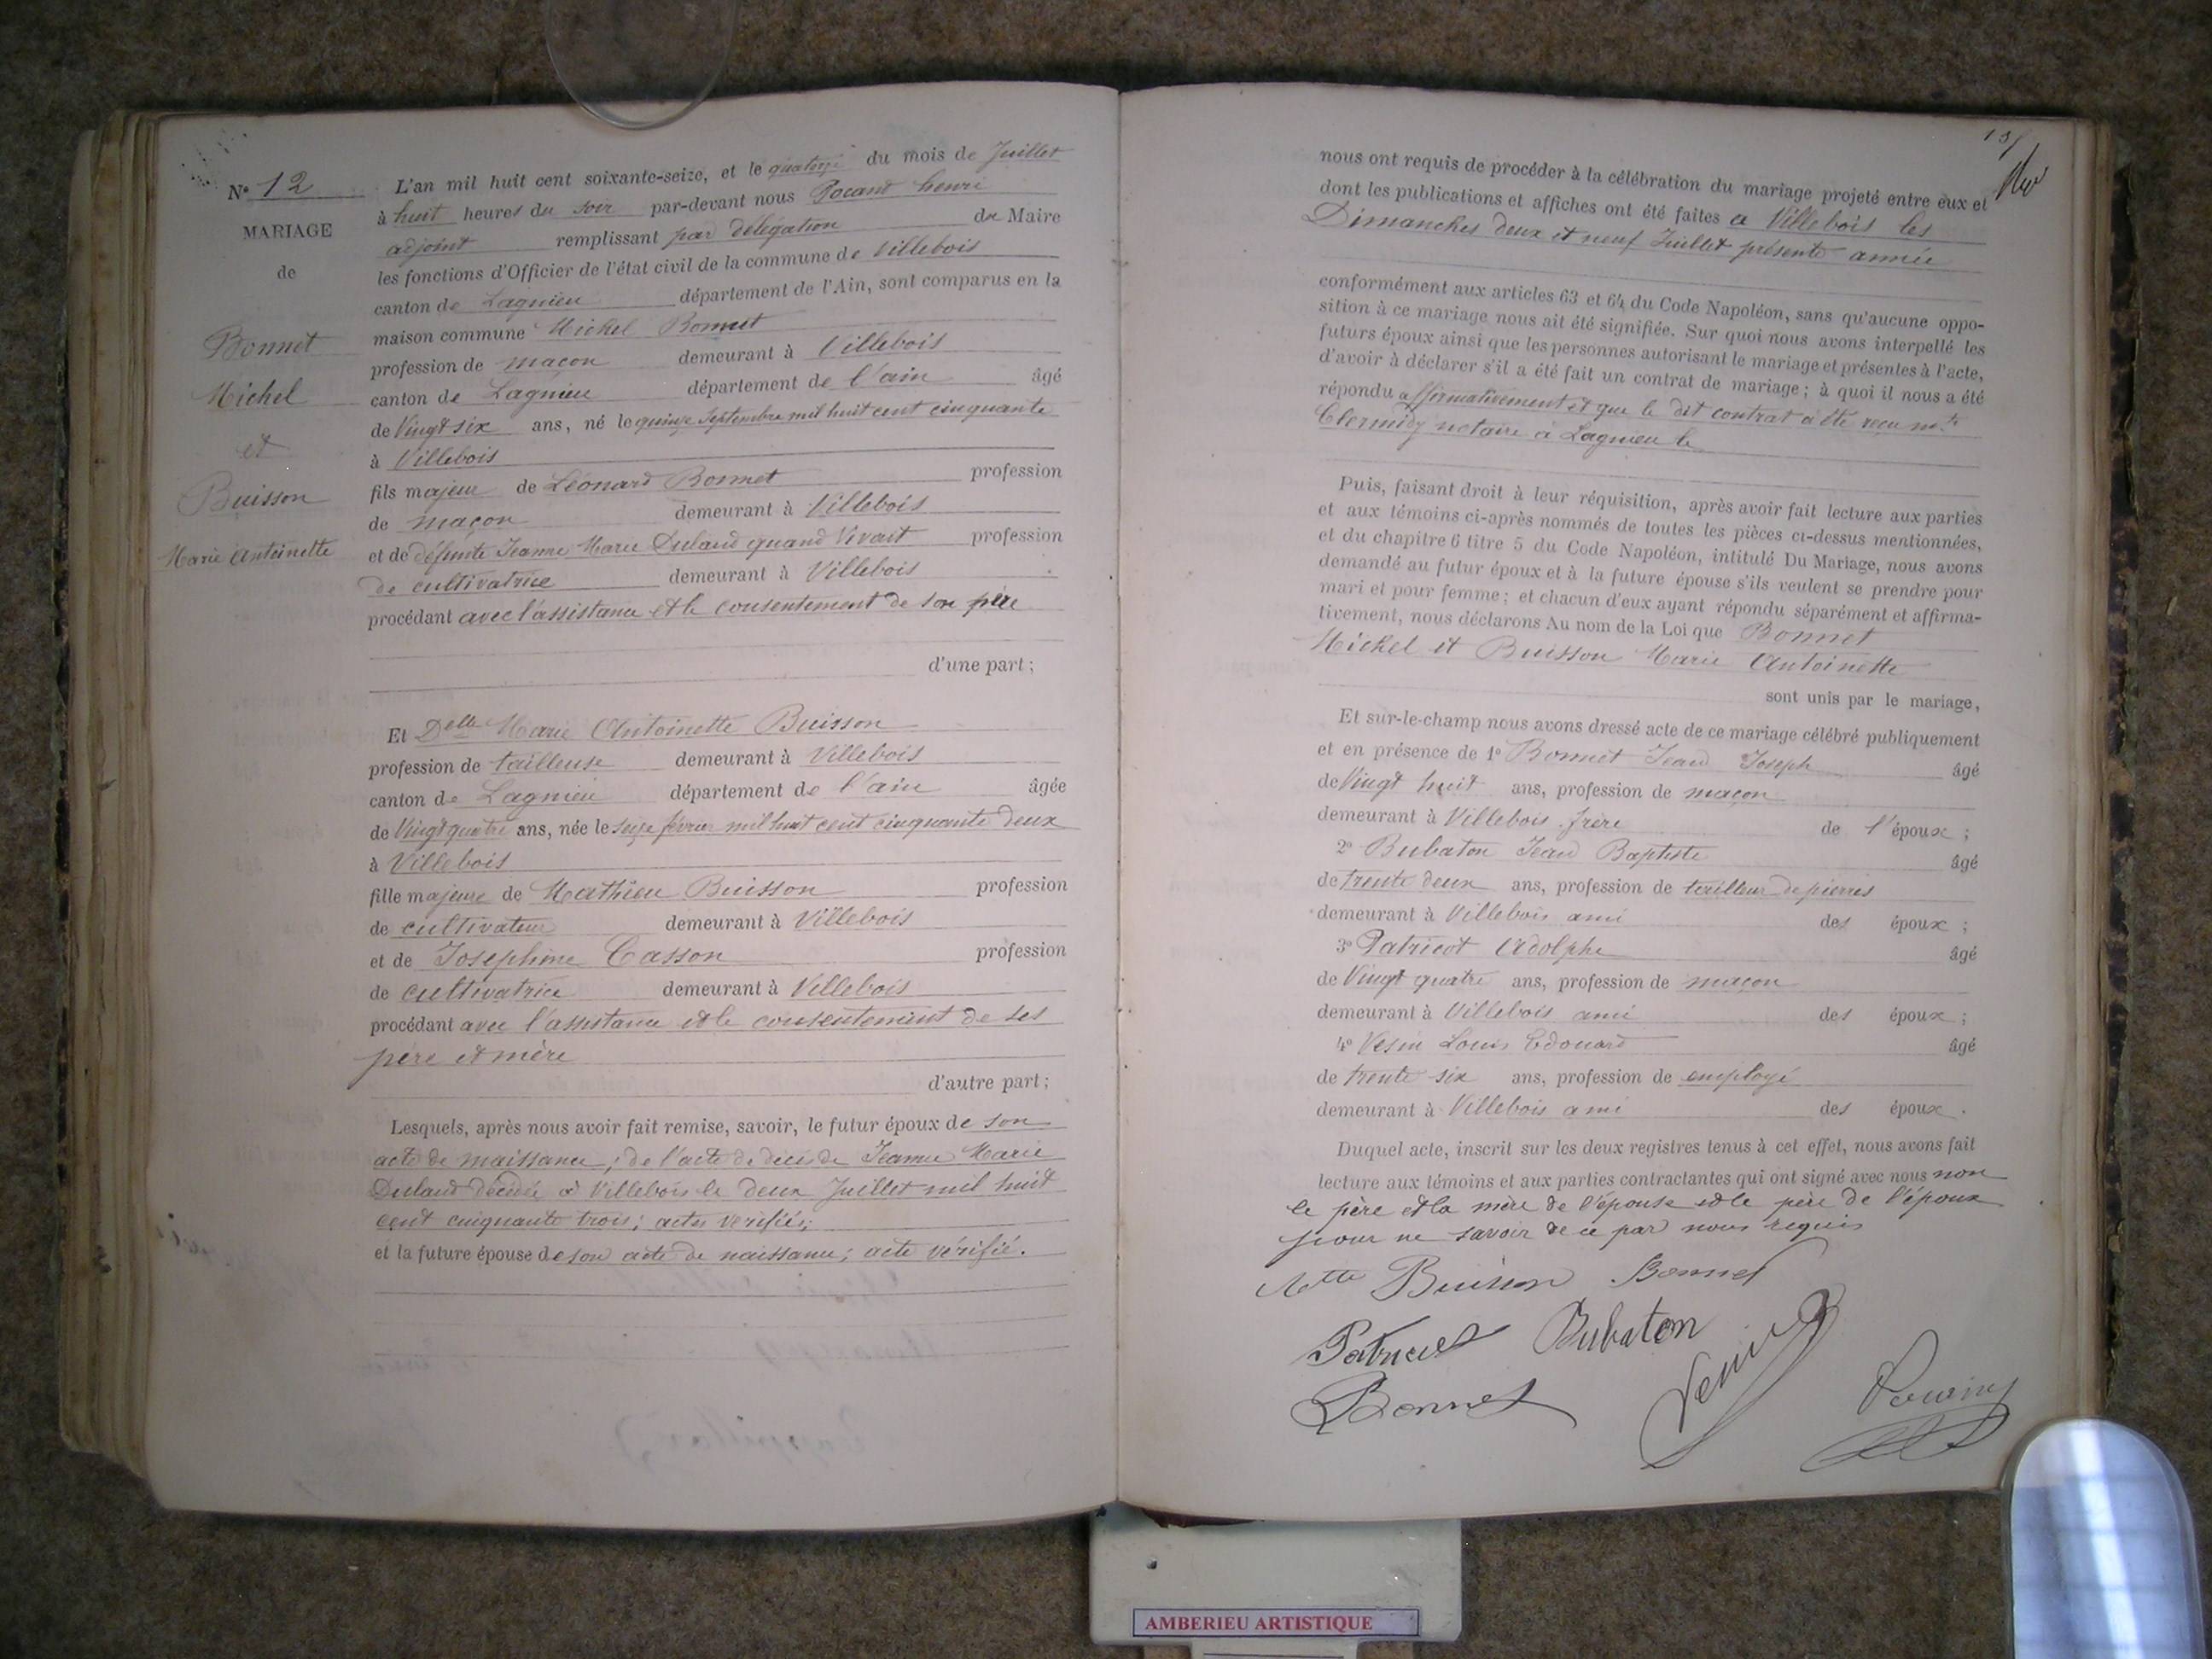 N° 12
MARIAGE
de
Bonnet
Michel
et
Buisson
Marie Antoinette
L'an mil huit cent soixante-seize, et le quatorze du mois de Juillet
à huit heures du soir par-devant nous Pocard henri
adjoint remplissant par délégation du Maire
les fonctions d'Officier de l'état civil de la commune de Villebois
canton de Lagnieu département de l'Ain, sont comparus en la
maison commune Michel Bonnet
profession de maçon demeurant à Villebois
canton de Lagnieu département de l'ain âgé
de Vingt six ans, né le quinze Septembre mil huit cent cinquante
à Villebois
fils majeur de Léonard Bonnet profession
de maçon demeurant à Villebois
et de défunte Jeanne Marie Dulard quand Vivait profession
de cultivatrice demeurant à Villebois
procédant avec l'assistance et le consentement de son père
d'une part ;
Et Delle Marie Antoinette Buisson
profession de tailleuse demeurant à Villebois
canton de Lagnieu département de l'ain âgée
de Vingt quatre ans, née le seize février mil huit cent cinquante deux
à Villebois
fille majeure de Mathieu Buisson profession
de cultivateur demeurant à Villebois
et de Josephine Casson profession
de cultivatrice demeurant à Villebois
procédant avec l'assistance et le consentement de ses
père et mère
d'autre part ;
Lesquels, après nous avoir fait remise, savoir, le futur époux de son
acte de naissance ; de l'acte de décès de Jeanne Marie
Dulard décédée à Villebois le deux Juillet mil huit
cent cinquante trois ; actes vérifiés ;
et la future épouse de son acte de naissance ; acte vérifié.
nous ont requis de procéder à la célébration du mariage projeté entre eux et
dont les publications et affiches ont été faites à Villebois les
Dimanches deux et neuf Juillet présente année
conformément aux articles 63 et 64 du Code Napoléon, sans qu'aucune oppo-
sition à ce mariage nous ait été signifiée. Sur quoi nous avons interpellé les
futurs époux ainsi que les personnes autorisant le mariage et présentes à l'acte,
d'avoir à déclarer s'il a été fait un contrat de mariage ; à quoi il nous a été
répondu affirmativement et que le dit contrat a été reçu mtre
Clermidy notaire à Lagnieu le
Puis, faisant droit à leur réquisition, après avoir fait lecture aux parties
et aux témoins ci-après nommés de toutes les pièces ci-dessus mentionnées,
et du chapitre 6 titre 5 du Code Napoléon, intitulé Du Mariage, nous avons
demandé au futur époux et à la future épouse s'ils veulent se prendre pour
mari et pour femme ; et chacun d'eux ayant répondu séparément et affirma-
tivement, nous déclarons Au nom de la Loi que Bonnet
Michel et Buisson Marie Antoinette
sont unis par le mariage,
Et sur-le-champ nous avons dressé acte de ce mariage célébré publiquement
et en présence de 1° Bonnet Jean Joseph âgé
de Vingt huit ans, profession de maçon
demeurant à Villebois frère de l'époux ;
2° Bubaton Jean Baptiste âgé
de trente deux ans, profession de tailleur de pierres
demeurant à Villebois ami des époux ;
3° Patricot Adolphe âgé
de Vingt quatre ans, profession de maçon
demeurant à Villebois ami des époux ;
4° Vesin Louis Edouard âgé
de trente six ans, profession de employé
demeurant à Villebois ami des époux.
Duquel acte, inscrit sur les deux registres tenus à cet effet, nous avons fait
lecture aux témoins et aux parties contractantes qui ont signé avec nous non
le père et la mère de l'épouse et le père de l'époux
pour ne savoir de ce par nous requis
Buisson Bonnet
Patricot Bubaton
Bonnet Vesin
AMBERIEU ARTISTIQUE